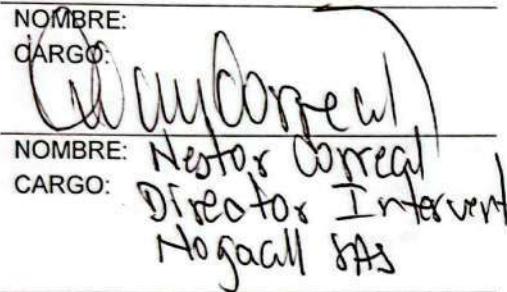 NOMBRE:
CARGO:
NOMBRE: Nestor Correal
CARGO: Director Intervent
Nogacll SAS